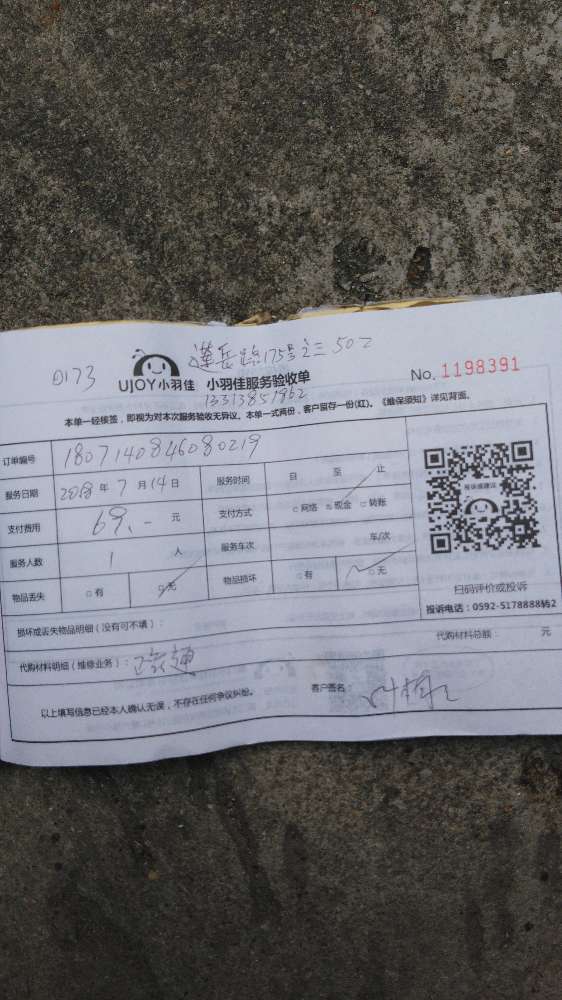 D173
莲岳路175号之三 502
UJOY小羽佳 小羽佳服务验收单
No. 1198391
13313851962
本单一经核签，即视为对本次服务验收无异议。本单一式两份，客户留存一份(红)。《维保须知》详见背面。
订单编号 1807140846080219
服务日期 2018 年 7 月 14 日 服务时间 自 至 止
支付费用 69.- 元 支付方式 □网络 □现金 □转账
服务人数 1 人 服务车次 车/次
物品丢失 □有 □无 物品损坏 □有 □无
扫码评价或投诉
投诉电话：0592-5178888转2
损坏或丢失物品明细（没有可不填）：
代购材料总额： 元
代购材料明细（维修业务）：
以上填写信息已经本人确认无误，不存在任何争议纠纷。 客户签名：